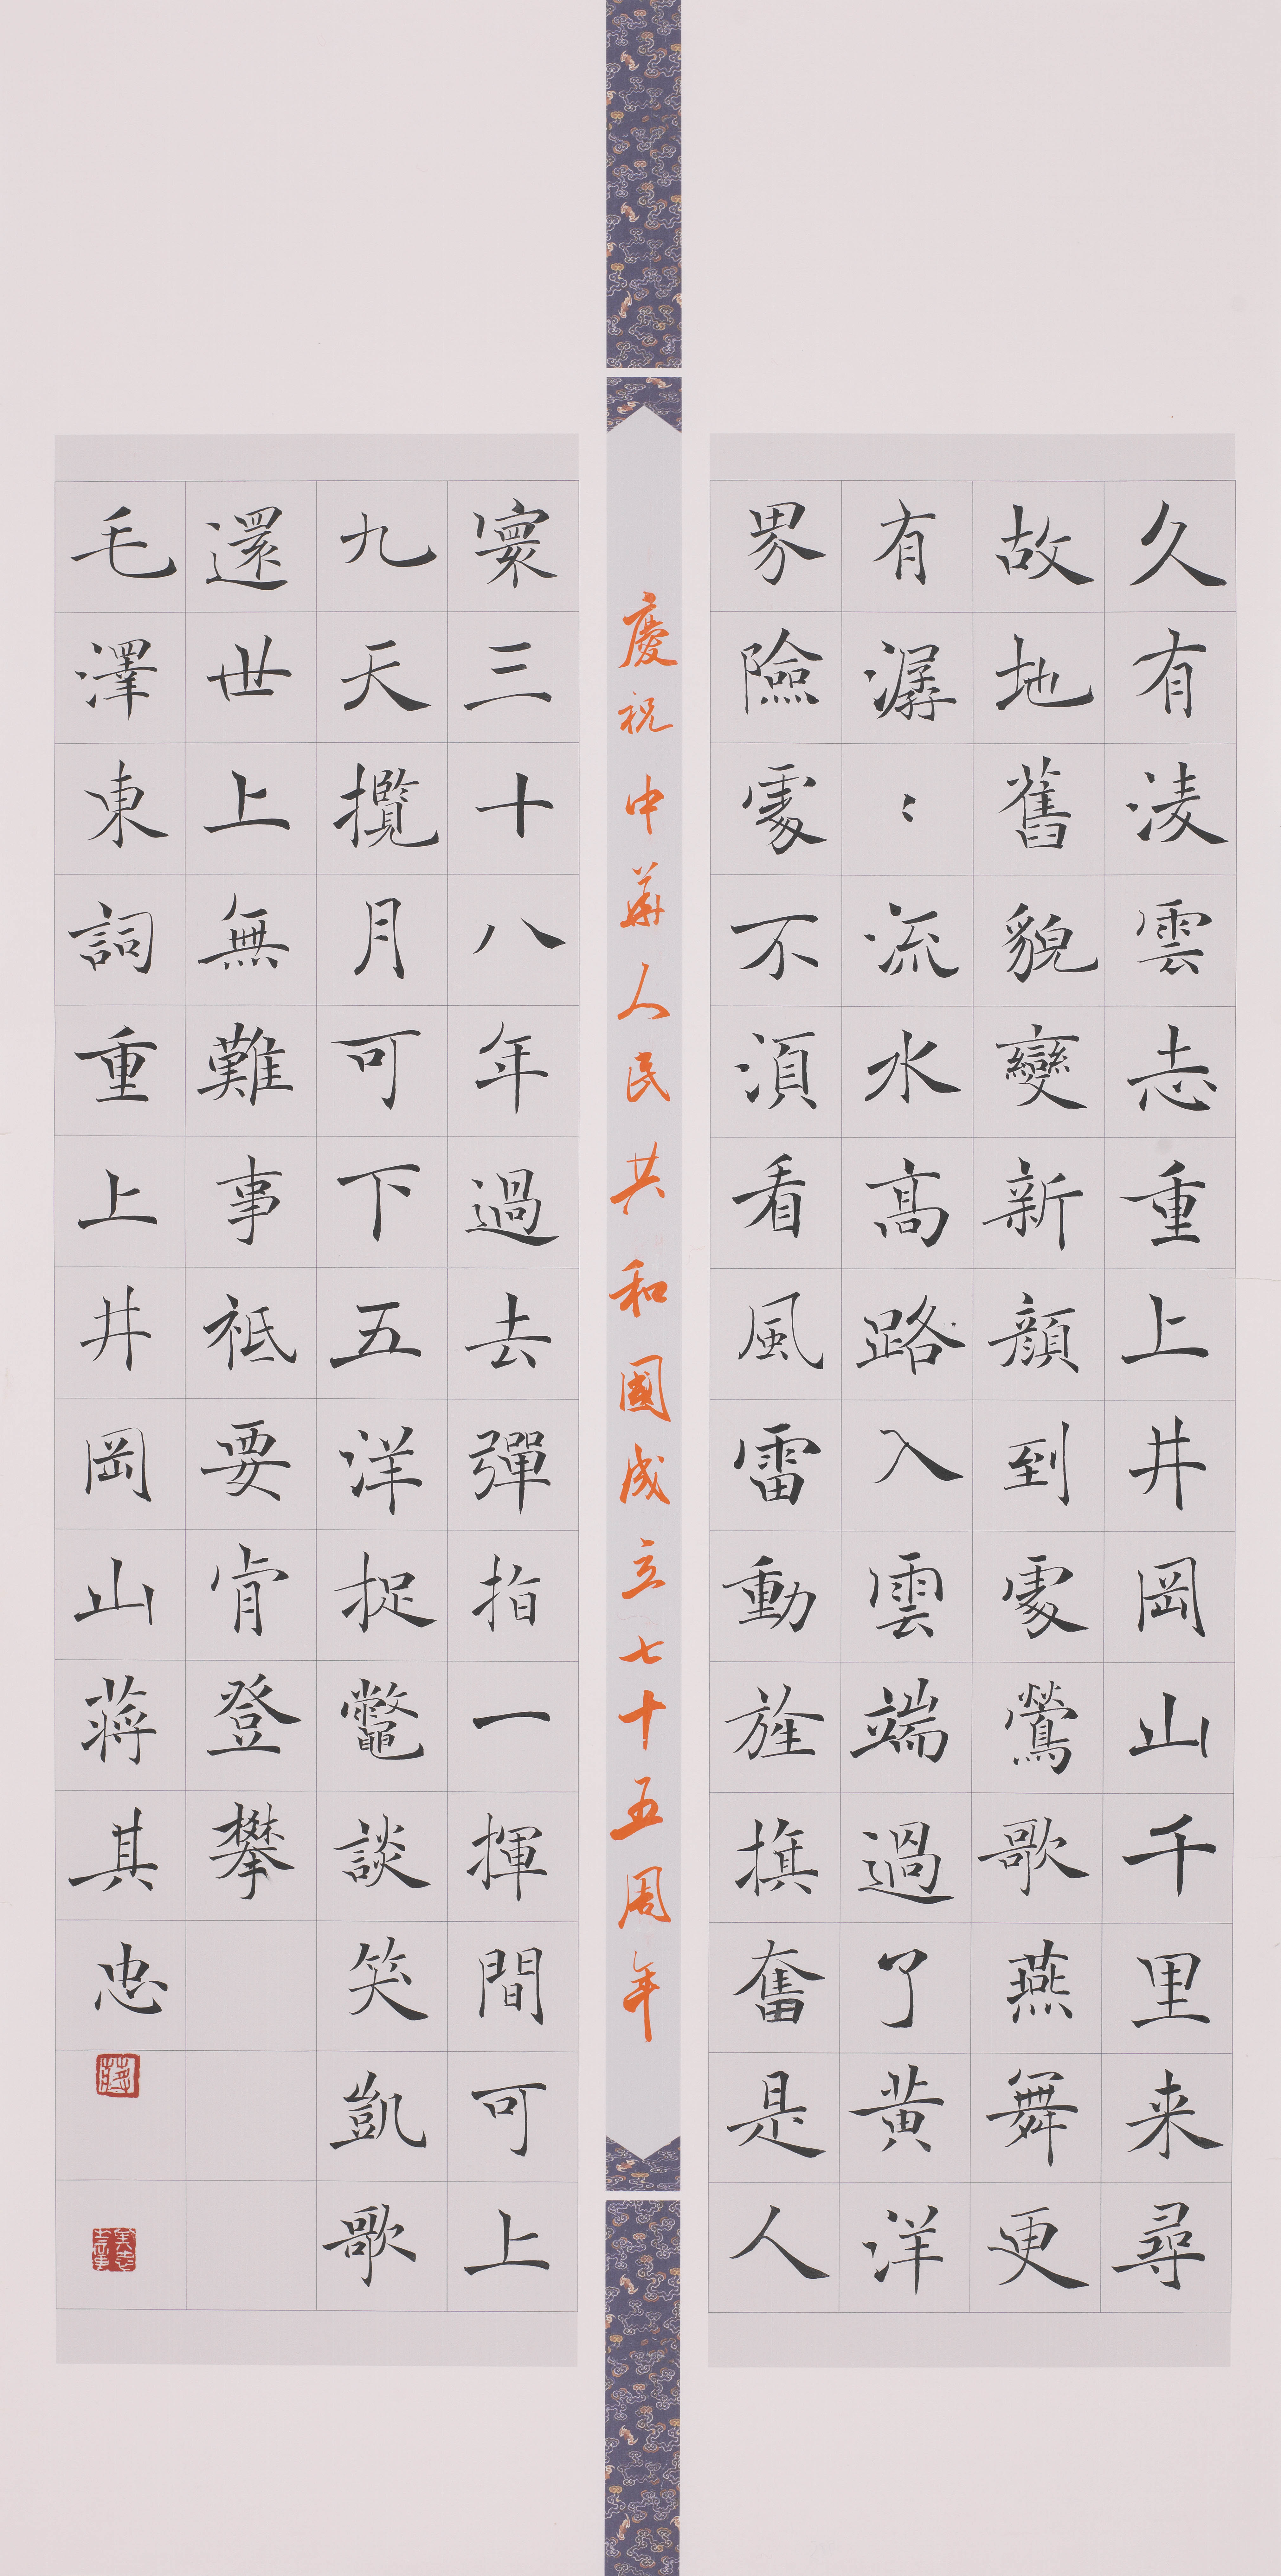 久有淩雲志重上井岡山千里来尋
故地舊貌變新顔到處鶯歌燕舞更
有潺〻流水高路入雲端過了黄洋
界險處不湏看風雷動旌旗奮是人
慶祝中華人民共和國成立七十五周年
寰三十八年過去彈指一揮間可上
九天攬月可下五洋捉鼈談笑凱歌
還世上無難事祗要肯登攀
毛澤東詞重上井岡山蔣其忠
蔣